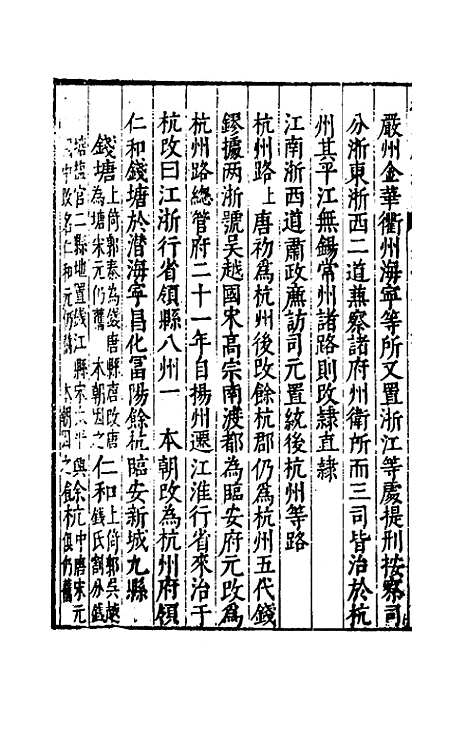 嚴州金華衢州海寧等所又置浙江等處提刑按察司
分浙東浙西二道兼察諸府州衛所而三司皆治於杭
州其平江無錫常州諸路則改隸直隸
江南浙西道肅政廉訪司元置統後杭州等路
杭州路上唐初爲杭州後改餘杭郡仍爲杭州五代錢
鏐據两浙號吴越國宋高宗南渡都為臨安府元改爲
杭州路總管府二十一年自揚州遷江淮行省來治于
杭改曰江浙行省領縣八州一 本朝改為杭州府領
仁和錢塘於潛海寧昌化富陽餘杭臨安新城九縣
錢塘上倚郭秦為錢唐縣唐改唐為塘宋元仍舊 本朝因之仁和上倚郭吴越錢氏割分錢
塘鹽官二縣地置錢江縣宋太平興國中改名仁和元仍舊 本朝因之餘杭中唐宋元俱仍舊